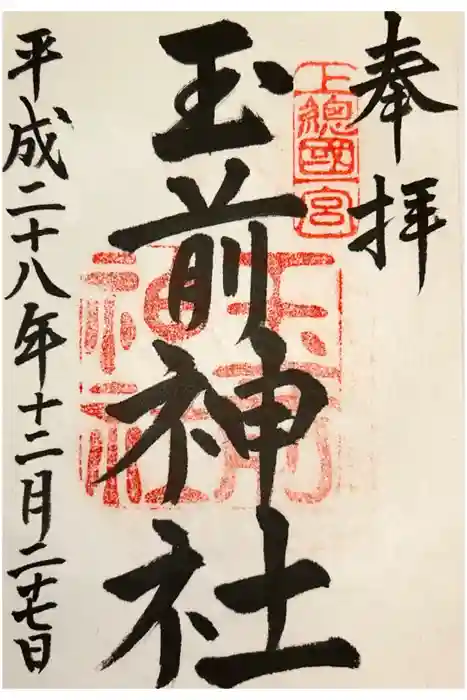 奉拝
上總國一宮
玉前神社
玉前神社
平成二十八年十二月二十七日